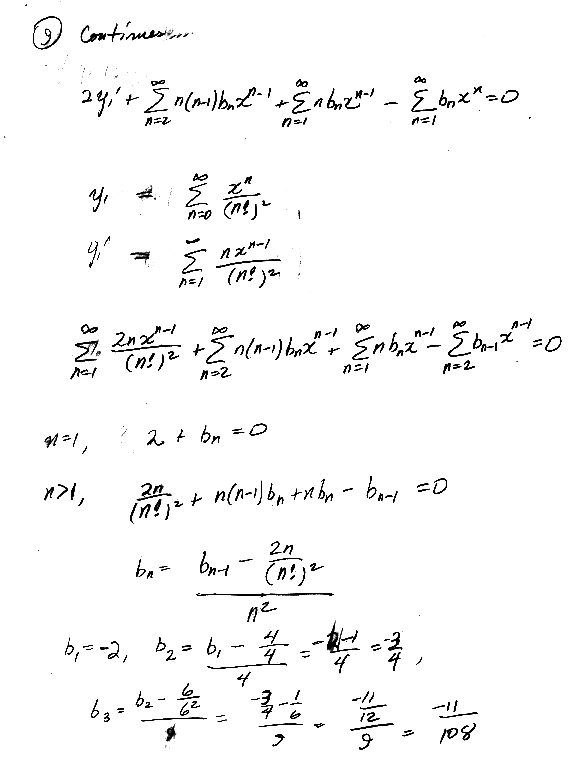 ⑨ Continues...
2y₁′ + ∑_{n=2}^{∞} n(n-1)bₙx^{n-1} + ∑_{n=1}^{∞} nbₙx^{n-1} − ∑_{n=1}^{∞} bₙxⁿ = 0
y₁ = ∑_{n=0}^{∞} xⁿ/(n!)²
y₁′ = ∑_{n=1}^{∞} nx^{n-1}/(n!)²
∑_{n=1}^{∞} 2nx^{n-1}/(n!)² + ∑_{n=2}^{∞} n(n-1)bₙx^{n-1} + ∑_{n=1}^{∞} nbₙx^{n-1} − ∑_{n=2}^{∞} b_{n-1}x^{n-1} = 0
n=1, 2 + bₙ = 0
n>1, 2n/(n!)² + n(n-1)bₙ + nbₙ − b_{n-1} = 0
bₙ = (b_{n-1} − 2n/(n!)²)/n²
b₁ = -2, b₂ = (b₁ − 4/4)/4 = (-2-1)/4 = -3/4,
b₃ = (b₂ − 6/6²)/9 = (-3/4 − 1/6)/9 = (-11/12)/9 = -11/108